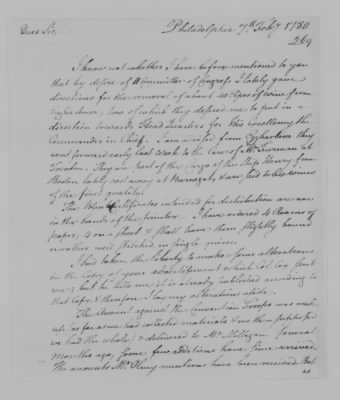 Dear Sir,
Philadelphia 7th Feby 1780
264
I know not whether I have before mentioned to you
that by desire of a Committee of Congress I lately gave
directions for the removal of about 10 Pipes of Wine from
Eggharbour, two of which they desired me to put in a
direction towards Head Quarters for His Excellency the
Commander in Chief. I am advised from Eggharbour they
went forward early last week to the Care of Mr.
Trenton. They are part of the Cargo of the Ship Henry from
Boston lately cast away at Barnegat, & are said to be wines
of the first quality.
The Blank Certificates intended for distribution are now
in the hands of the printer. I have ordered 4 Reams of
paper, 4 on a sheet & shall have them slightly bound
or rather well stitched in single quires.
I had taken the liberty to make some alterations
in the Copy of your advertisement which Col. Cox sent
me; but he tells me it is already published according to
that Copy & therefore I lay my alterations aside.
The Account against the Convention Troops was made
up (as far as we had collected materials & we then puts
we had the whole) & delivered to Mr. Milligan several
Months ago, some few additions have since arrived.
The accounts Mr. mentions have been received. But
as